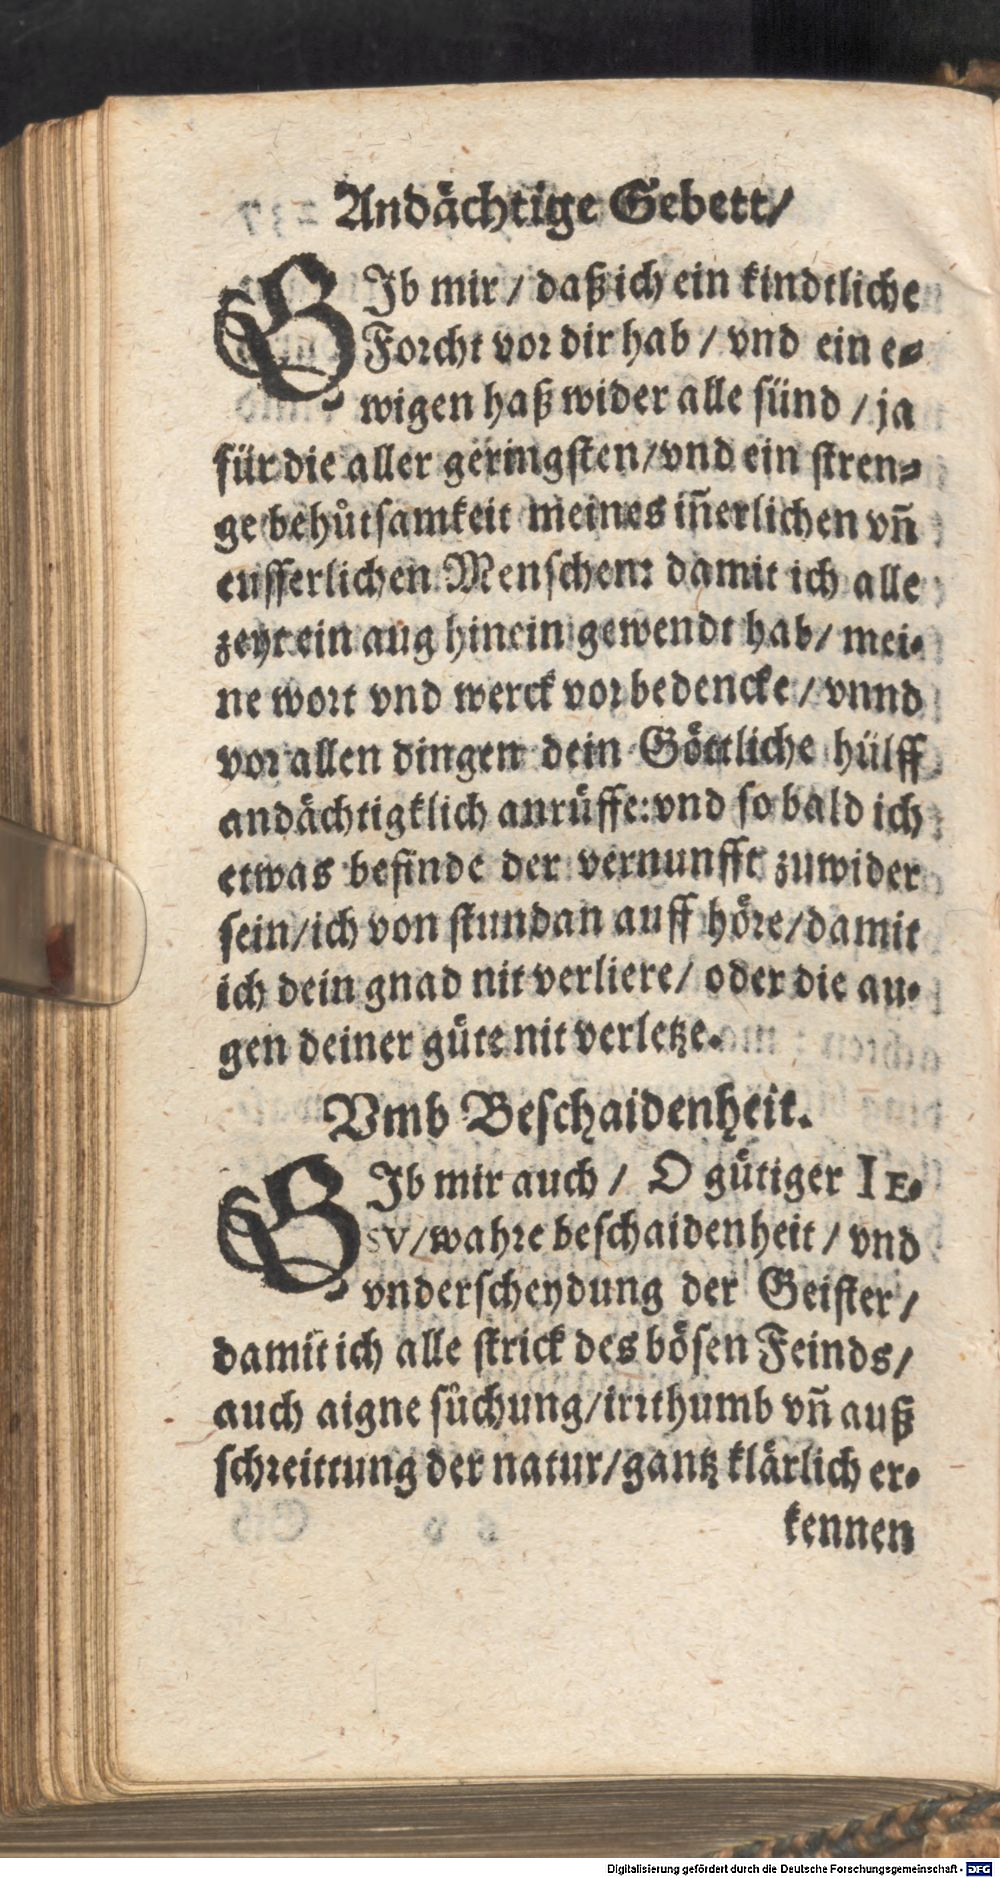 Andächtige Gebett/
GIb mir / daß ich ein kindtliche
Forcht vor dir hab / vnd ein e-
wigen haß wider alle sünd / ja
für die aller geringsten/vnd ein stren-
ge behůtsamkeit meines iñerlichen vñ
eusserlichen Menschen: damit ich alle
zeyt ein aug hinein gewendt hab/ mei-
ne wort vnd werck vorbedencke / vnnd
vor allen dingen dein Göttliche hülff
andächtigklich anrüffe: vnd so bald ich
etwas befinde der vernunfft zuwider
sein/ich von stundan auff höre/damit
ich dein gnad nit verliere/ oder die au-
gen deiner güte nit verletze.
Vmb Beschaidenheit.
GIb mir auch / O gütiger IE-
SV/wahre beschaidenheit / vnd
vnderscheydung der Geister /
damit ich alle strick des bösen Feinds/
auch aigne sůchung/irrthumb vñ auß
schreittung der natur/gantz klärlich er-
kennen
Digitalisierung gefördert durch die Deutsche Forschungsgemeinschaft - DFG